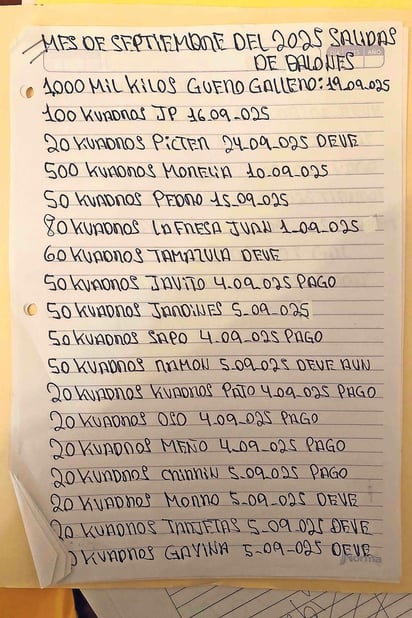 MES DE SEPTIEMBRE DEL 2025 SALIDAS
DE BALONES
1000 MIL KILOS GUERO GALLERO: 19.09.025
100 KUADROS JP 16.09.025
20 KUADROS PICTER 24.09.025 DEVE
500 KUADROS MORELIA 10.09.025
50 KUADROS PEDRO 15.09.025
80 KUADROS LA FRESA JUAN 1.09.025
60 KUADROS TAMAZULA DEVE
50 KUADROS JAVITO 4.09.025 PAGO
50 KUADROS JARDINES 5.09.025
50 KUADROS SAPO 4.09.025 PAGO
50 KUADROS RAMON 5.09.025 DEVE AUN
20 KUADROS KUADROS PATO 4.09.025 PAGO
20 KUADROS OSO 4.09.025 PAGO
20 KUADROS MEÑO 4.09.025 PAGO
20 KUADROS CHIRRIN 5.09.025 PAGO
20 KUADROS MORRO 5.09.025 DEVE
20 KUADROS TARJETAS 5.09.025 DEVE
0 KUADROS GAVINA 5.09.025 DEVE
Norma